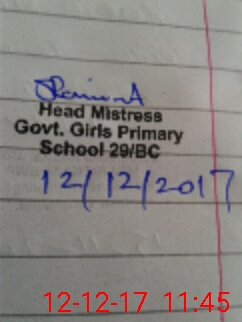 Head Mistress
Govt. Girls Primary
School 29/BC
12/12/2017
12-12-17 11:45